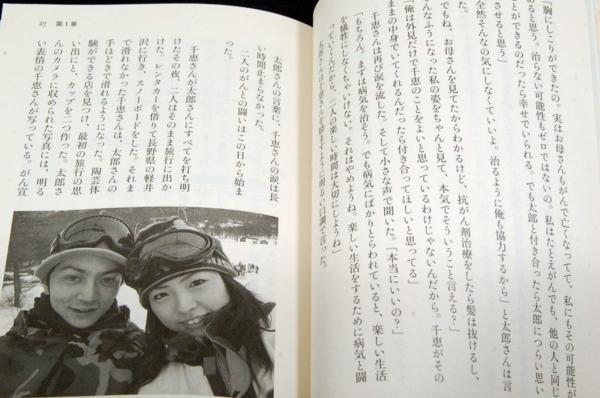 「胸にしこりができたの。実はお母さんもがんで亡くなってて、私にもその可能性が
あると思う。治らない可能性もゼロではないの。私はたとえがんでも、他の人と同じ
ことができるのだったら幸せでいられる。でも太郎と付き合ったら太郎につらい思い
させると思う」
全然そんなの気にしなくていいよ。治るように俺も協力するから」と太郎さんは言
でもね、お母さんを見てたからわかるけど、抗がん剤治療をしたら髪は抜けるし、
んなふうになった私の姿をちゃんと見て、本気でそういうこと言える？」
「俺は外見だけで千恵のことをよいと思っているわけじゃないんだから。千恵がその
ままの中身でいてくれるんだったら付き合ってほしいと思ってる」
千恵さんは再び涙を流した。そして小さな声で聞いた。「本当にいいの？」
「もちろん。まずは病気を治そう。でも病気にばかりとらわれていると、楽しい生活
を犠牲にしなくちゃいけない。それはやめようね。楽しい生活をするために病気と闘
っていくんだから、二人の楽しい時間は大切にしようね」
太郎さんは千恵さんを励ますように明るい口調で言った。
27 第1章
太郎さんの言葉に、千恵さんの涙は長
い時間止まらなかった。
二人のがんとの闘いはこの日から始ま
った。
千恵さんが太郎さんにすべてを打ち明
けたその夜、二人はそのまま旅行に出か
けた。レンタカーを借りて長野県の軽井
沢に行き、スノーボードをした。それま
で滑れなかった千恵さんは、太郎さんの
手ほどきで滑れるようになった。陶芸体
験ができる店を見つけ、最初の旅行の思
い出にと、カップを二つ作った。太郎さ
んのカメラに収められた写真には、明る
い表情の千恵さんが写っている。がん宣